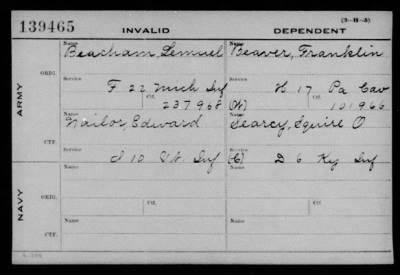 139465 INVALID DEPENDENT (3-H-3)
Name Name
Beacham, Lemuel Beaver, Franklin
ORIG. Service Service
F 22 Mich Inf H 17 Pa Cav
Ctf. 237968 (W) Ctf. 101966
ARMY
Name Name
Nailor, Edward Searcy, Squire O
CTF. Service Service
I 10 Vt. Inf (C) D 6 Ky Inf
Name Name
ORIG. Service Service
Ctf. Ctf.
NAVY
Name Name
CTF.